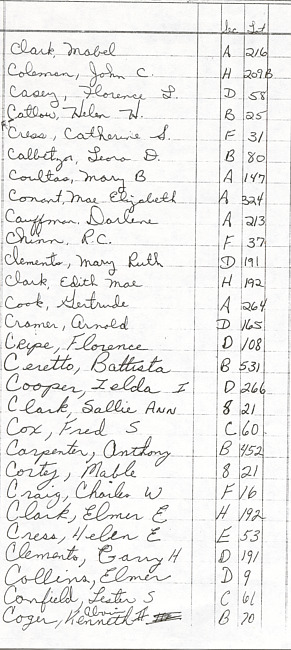 Sec Lot
Clark, Mabel A 216
Coleman, John C. H 209B
Casey, Florence L. D 58
Catlow, Helen W. B 25
Cress, Catherine S. F 31
Calbetzor, Leora D. B 80
Coultas, Mary B A 147
Conant, Mae Elizabeth A 324
Cauffman, Darlene A 213
Chinn, R.C. F 37
Clements, Mary Ruth D 191
Clark, Edith Mae H 192
Cook, Gertrude A 264
Cramer, Arnold D 165
Cripe, Florence D 108
Ceretto, Battista B 531
Cooper, Zelda I D 266
Clark, Sallie Ann 8 21
Cox, Fred S C 60
Carpenter, Anthony B 452
Cortez, Mable 8 21
Craig, Charles W F 16
Clark, Elmer E H 192
Cress, Helen E E 53
Clements, Garry H D 191
Collins, Elmer D 9
Confield, Lester S C 61
Coger, Kenneth B 70